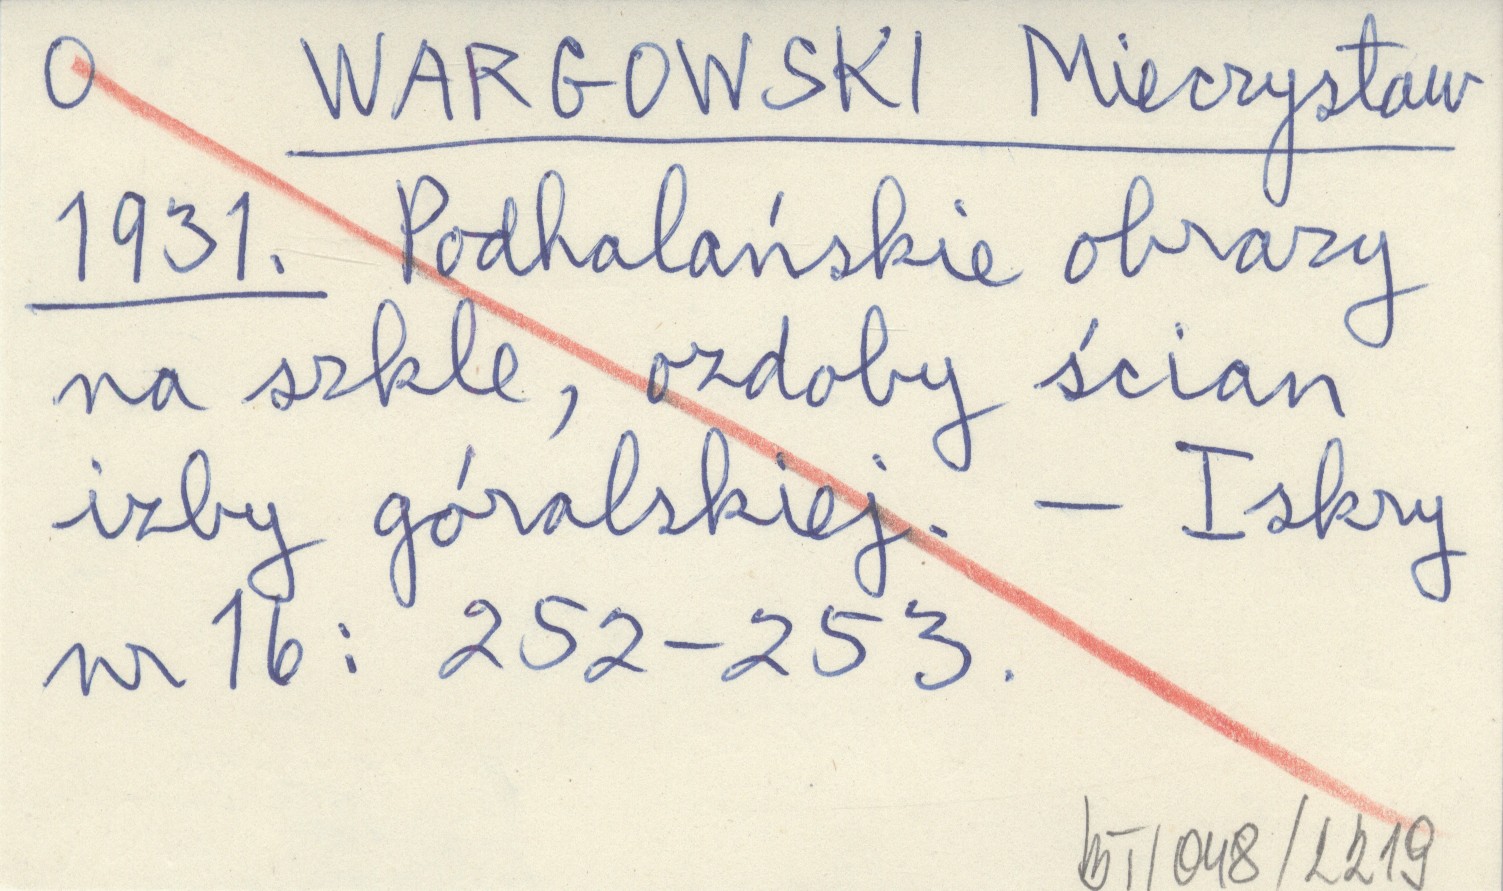 O WARGOWSKI Mieczysław
1931. Podhalańskie obrazy
na szkle, ozdoby ścian
izby góralskiej. — Iskry
nr 16: 252-253.
/048/2219